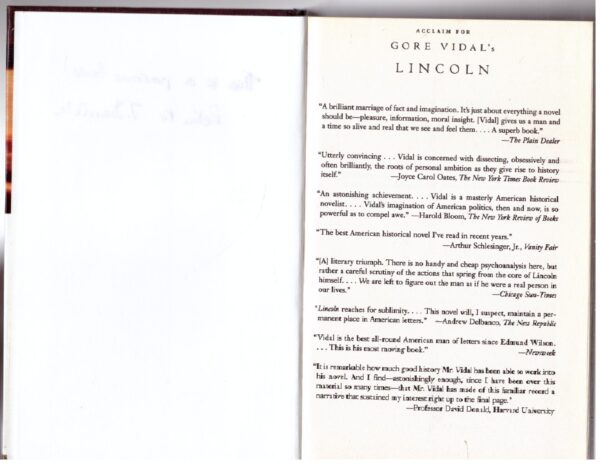 This is a
ACCLAIM FOR
GORE VIDAL's
LINCOLN
"A brilliant marriage of fact and imagination. It's just about everything a novel
should be—pleasure, information, moral insight. [Vidal] gives us a man and
a time so alive and real that we see and feel them. . . . A superb book."
—The Plain Dealer
"Utterly convincing . . . Vidal is concerned with dissecting, obsessively and
often brilliantly, the roots of personal ambition as they give rise to history
itself."
—Joyce Carol Oates, The New York Times Book Review
"An astonishing achievement. . . . Vidal is a masterly American historical
novelist. . . . Vidal's imagination of American politics, then and now, is so
powerful as to compel awe." —Harold Bloom, The New York Review of Books
"The best American historical novel I've read in recent years."
—Arthur Schlesinger, Jr., Vanity Fair
"[A] literary triumph. There is no handy and cheap psychoanalysis here, but
rather a careful scrutiny of the actions that spring from the core of Lincoln
himself. . . . We are left to figure out the man as if he were a real person in
our lives."
—Chicago Sun-Times
"Lincoln reaches for sublimity. . . . This novel will, I suspect, maintain a per-
manent place in American letters." —Andrew Delbanco, The New Republic
"Vidal is the best all-round American man of letters since Edmund Wilson.
. . . This is his most moving book."
—Newsweek
"It is remarkable how much good history Mr. Vidal has been able to work into
his novel. And I find—astonishingly enough, since I have been over this
material so many times—that Mr. Vidal has made of this familiar record a
narrative that sustained my interest right up to the final page."
—Professor David Donald, Harvard University